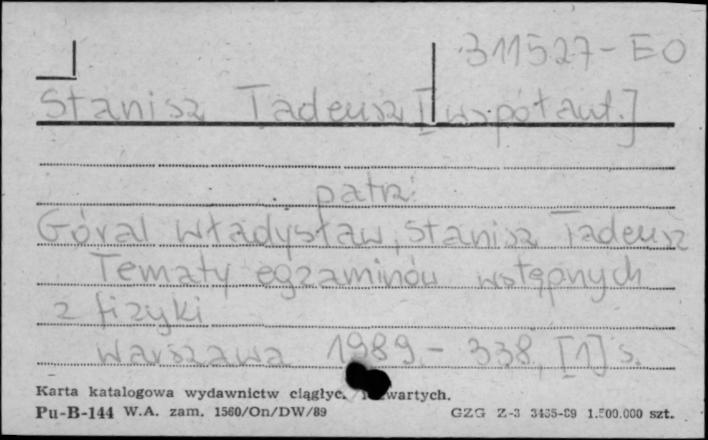 311527-EO
Stanisz Tadeusz [współaut.]
patrz:
Góral Władysław, Stanisz Tadeusz
Tematy egzaminów wstępnych
z fizyki
Warszawa 1989.- 338, [1] s.
Karta katalogowa wydawnictw ciągłyc. wartych.
Pu-B-144 W.A. zam. 1560/On/DW/89 GZG Z-3 3435-89 1.500.000 szt.